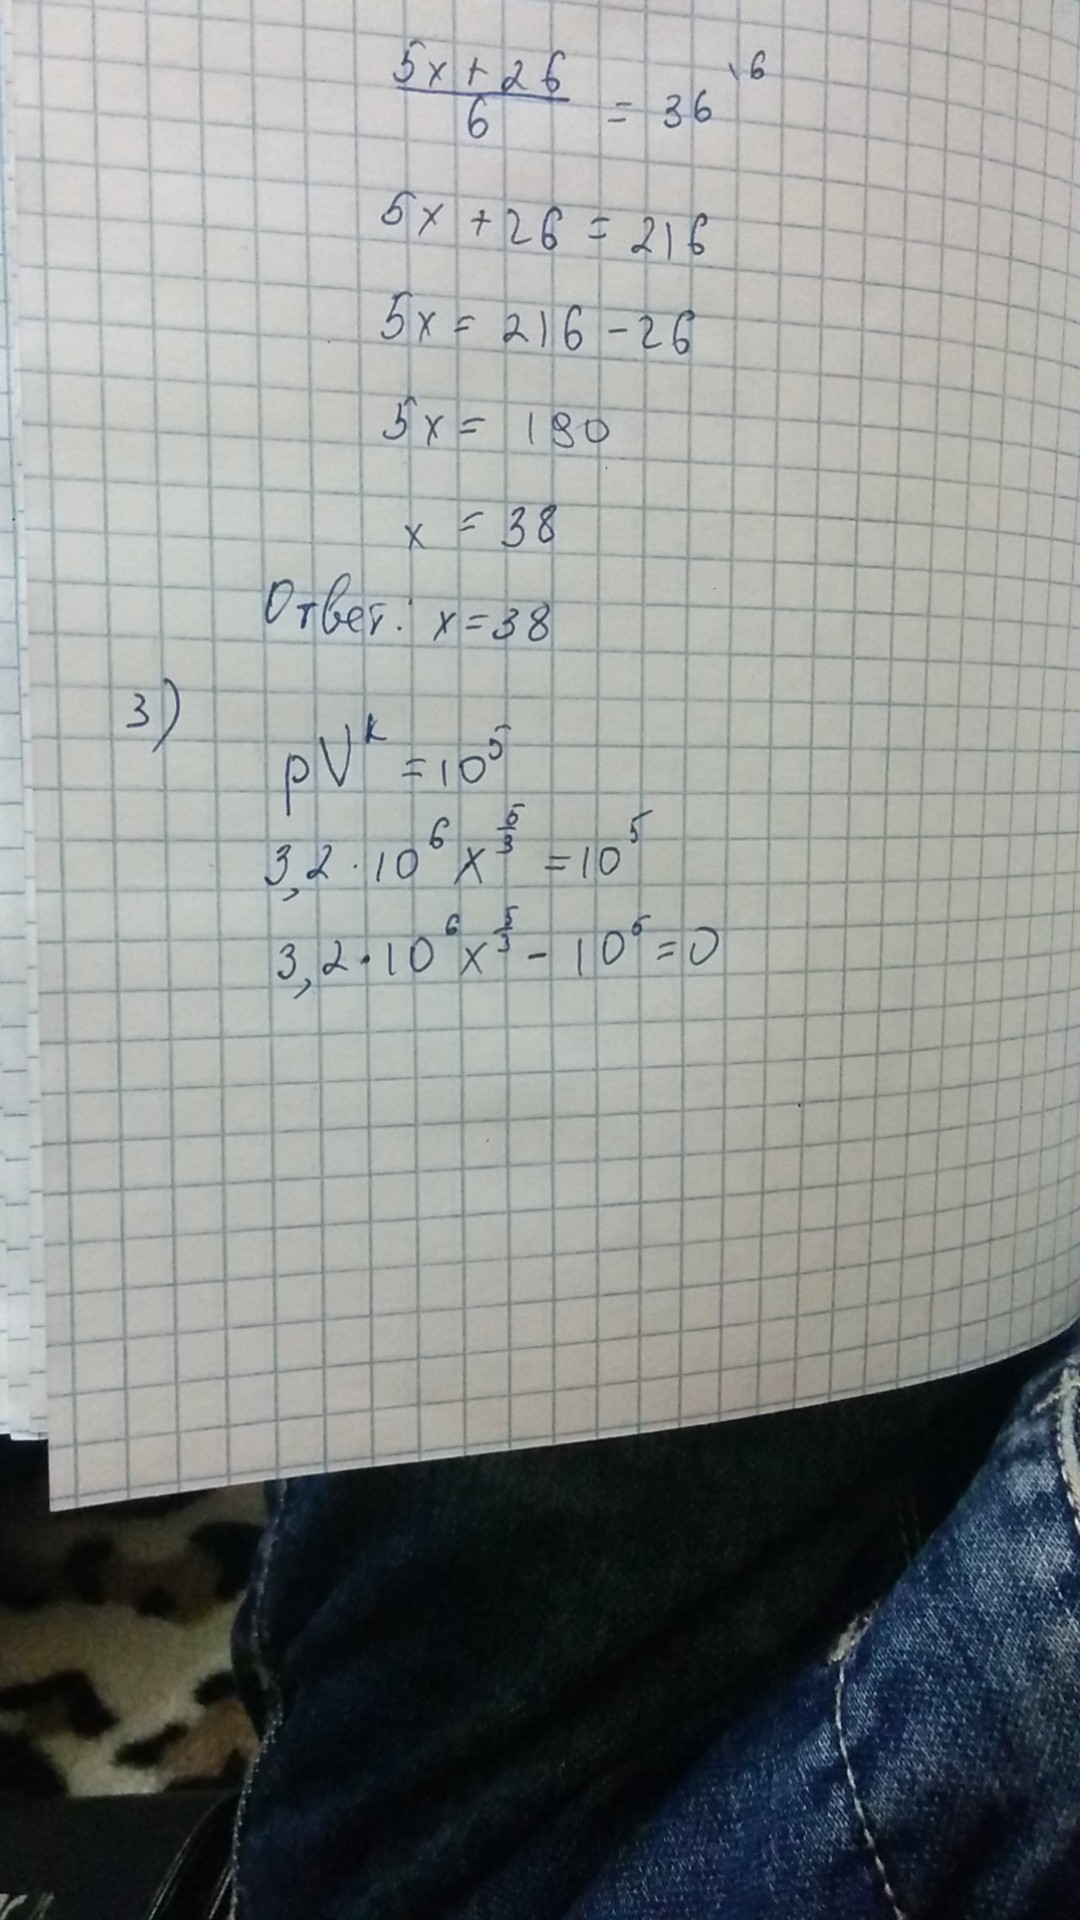 5x+26/6 = 36 \6
5x+26=216
5x=216-26
5x=190
x=38
Ответ: x=38
3)
pV^k=10^5
3,2·10^6x^(5/3)=10^5
3,2·10^6x^(5/3)-10^5=0